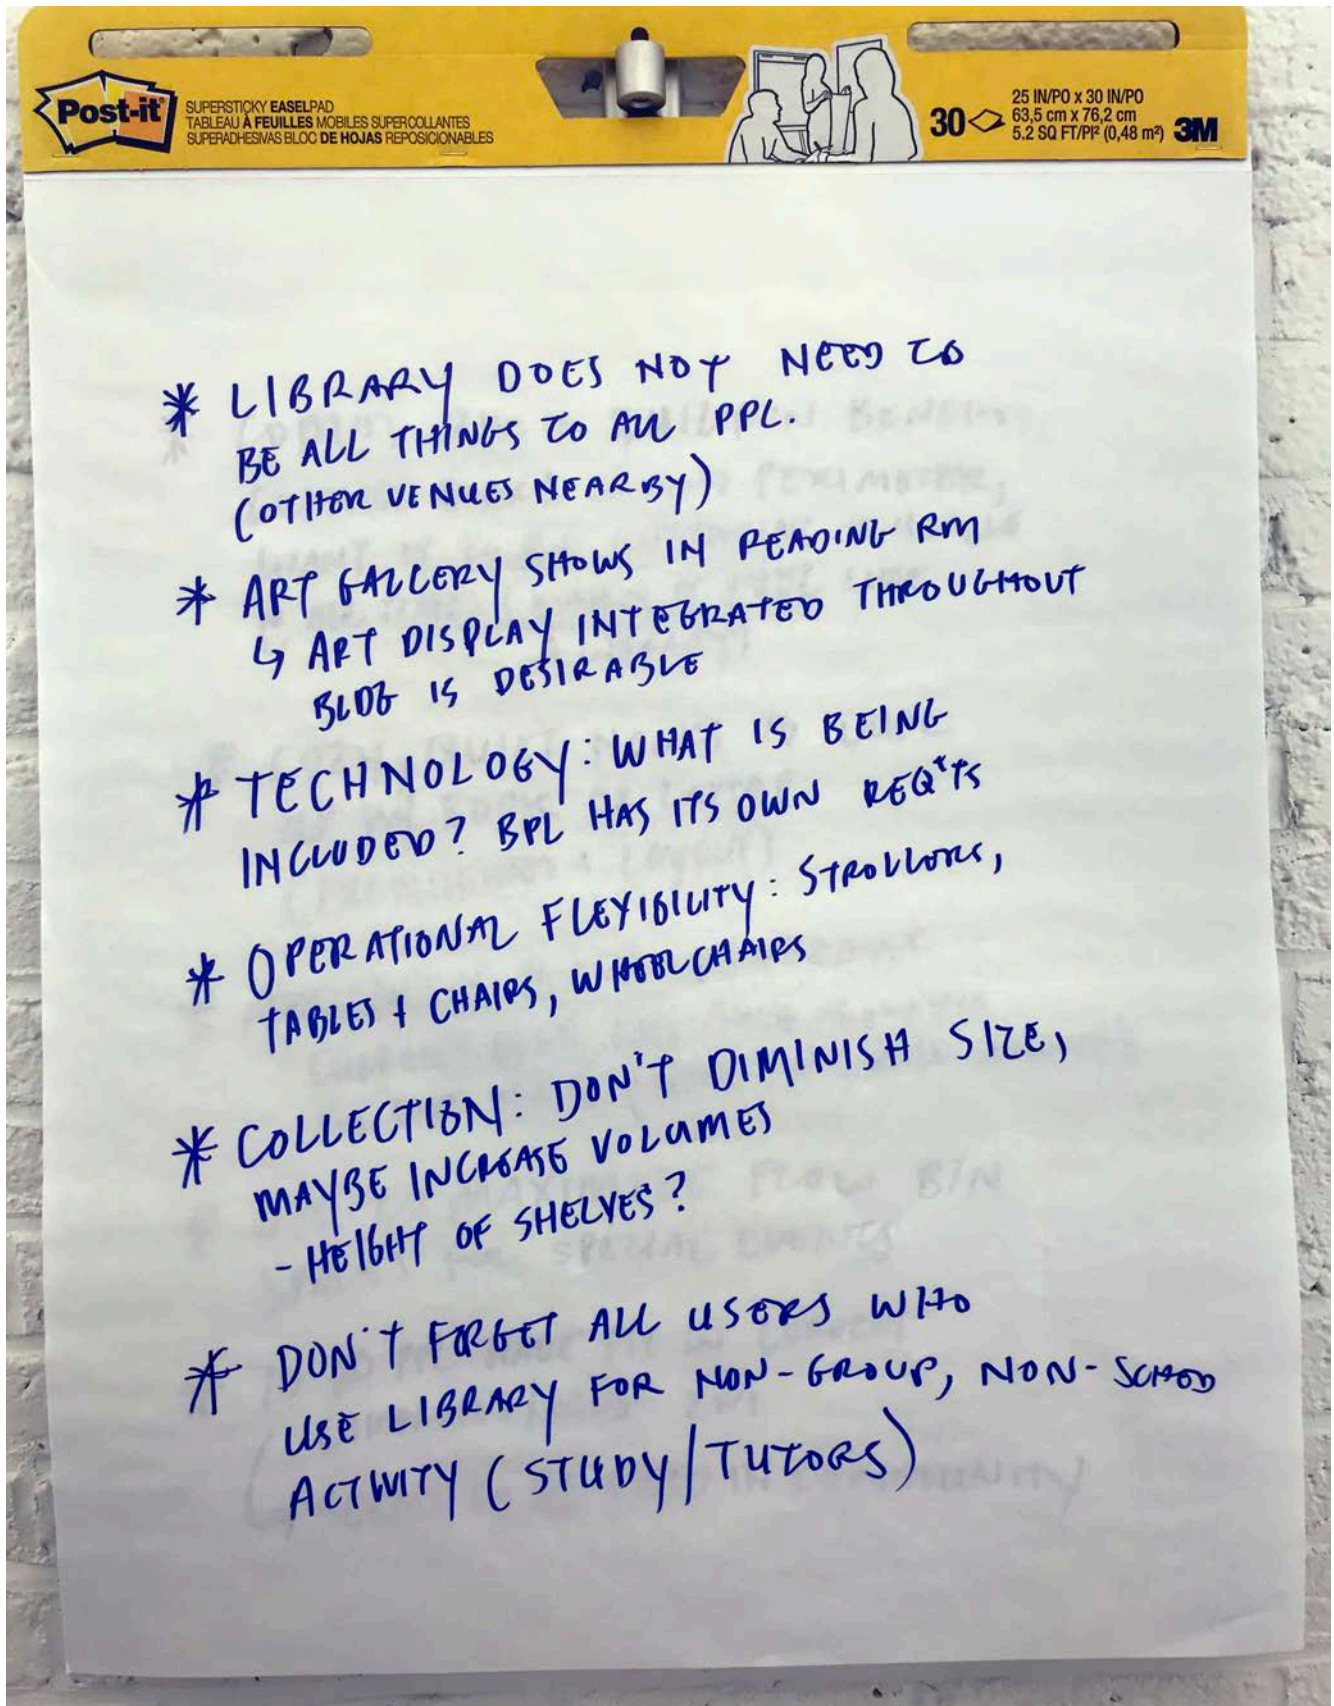 Post-it
SUPERSTICKY EASELPAD
TABLEAU À FEUILLES MOBILES SUPERCOLLANTES
SUPERADHESIVAS BLOC DE HOJAS REPOSICIONABLES
30
25 IN/PO x 30 IN/PO
63,5 cm x 76,2 cm
5.2 SQ FT/PI² (0,48 m²)
3M
* LIBRARY DOES NOT NEED TO
BE ALL THINGS TO ALL PPL.
(OTHER VENUES NEARBY)
* ART GALLERY SHOWS IN READING RM
↳ ART DISPLAY INTEGRATED THROUGHOUT
BLDG IS DESIRABLE
* TECHNOLOGY: WHAT IS BEING
INCLUDED? BPL HAS ITS OWN REQ'TS
* OPERATIONAL FLEXIBILITY: STROLLERS,
TABLES + CHAIRS, WHEELCHAIRS
* COLLECTION: DON'T DIMINISH SIZE,
MAYBE INCREASE VOLUMES
- HEIGHT OF SHELVES?
* DON'T FORGET ALL USERS WHO
USE LIBRARY FOR NON-GROUP, NON-SCHED
ACTIVITY (STUDY/TUTORS)